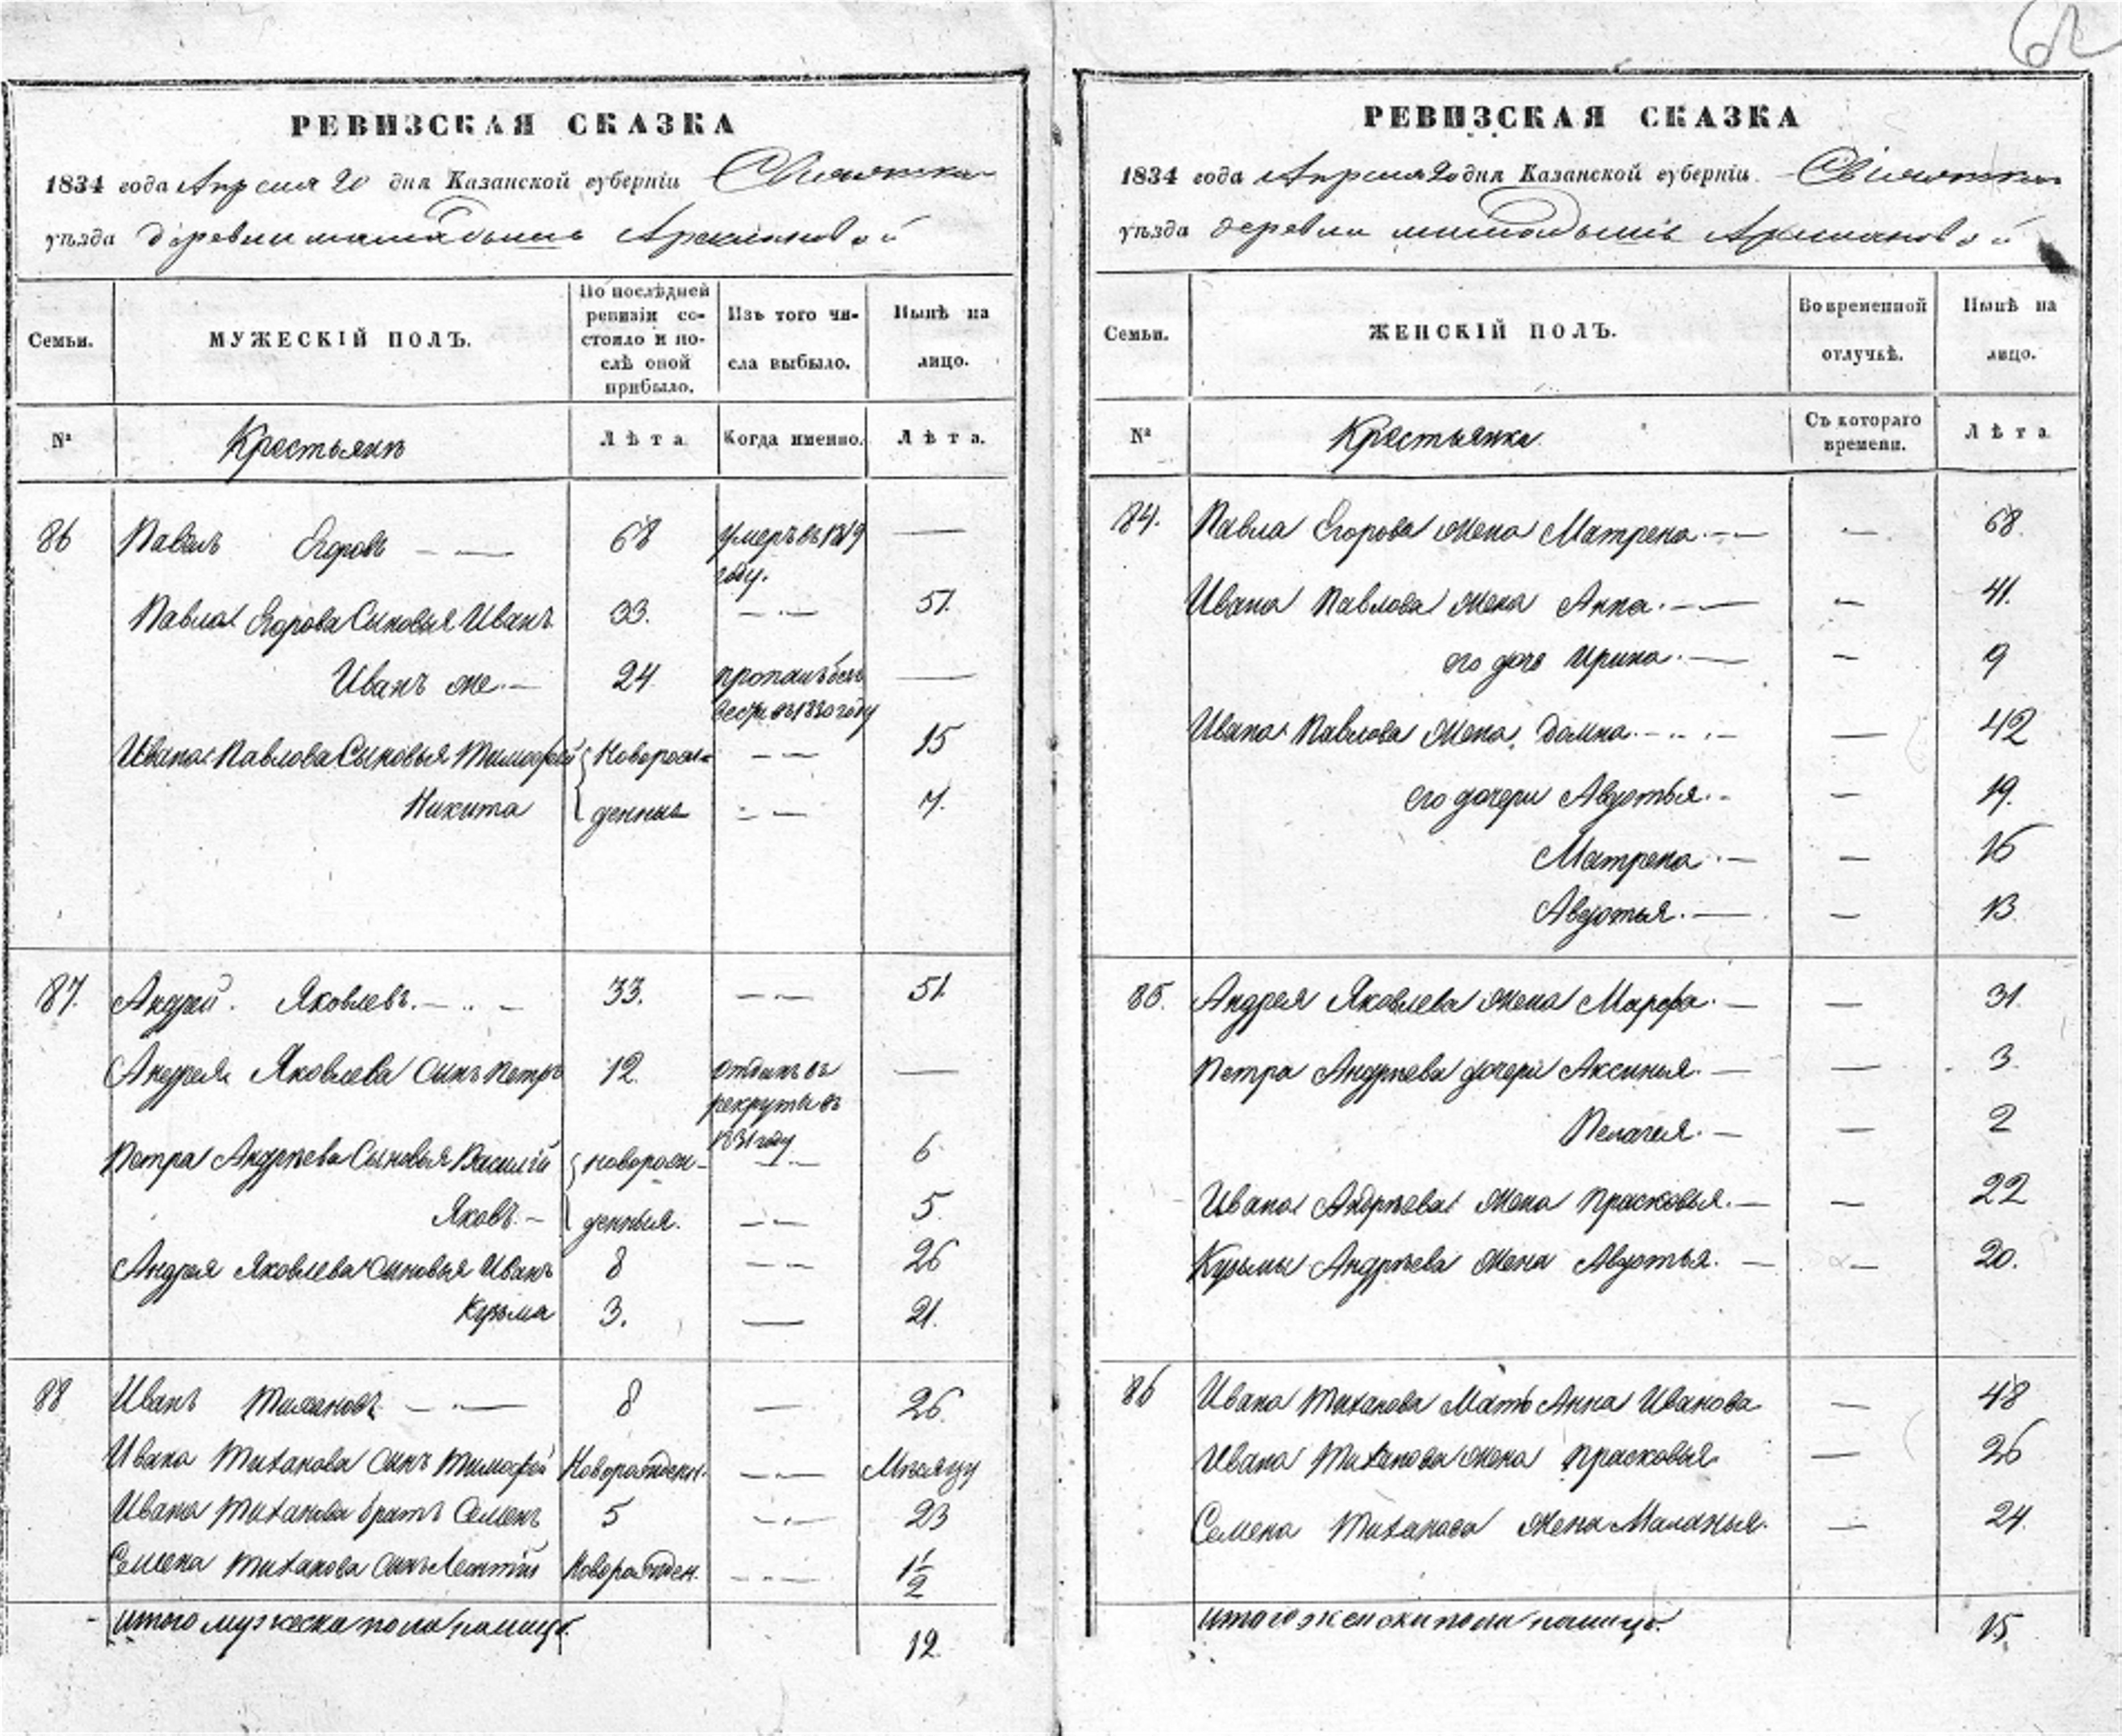 62
РЕВИЗСКАЯ СКАЗКА
1834 года Апреля 20 дня Казанской губерніи
уѣзда деревни
Семьи.
МУЖЕСКІЙ ПОЛЪ.
По послѣдней ревизіи состояло и послѣ оной прибыло.
Изъ того числа выбыло.
Нынѣ на лицо.
№ Крестьянъ Лѣта Когда именно. Лѣта.
86 Павелъ Егоровъ 68 умеръ въ 1819 году. —
Павла Егорова Сыновья Иванъ 33. — 51.
Иванъ же 24 пропалъ безъ вести въ 1830 году —
Ивана Павлова Сыновья Тимофей Новорож- — 15
Никита денныя — 7.
87. Андрей Яковлевъ. 33. — 51.
Андрея Яковлева сынъ Петръ 12. отданъ въ рекруты въ 1831 году —
Петра Андрѣева Сыновья Василій новорож- — 6
Яковъ. денныя. — 5.
Андрея Яковлева сыновья Иванъ 8 — 26
Кузьма 3. — 21.
88 Иванъ Тихановъ 8 — 26.
Ивана Тиханова сынъ Тимофей Новорожден. — Мѣсяцу
Ивана Тиханова братъ Семенъ 5 — 23
Семена Тиханова сынъ Леонтій Новорожден. — 1 1/2
итого мужеска пола на лицо. 12.
РЕВИЗСКАЯ СКАЗКА
1834 года Апреля 20 дня Казанской губерніи
уѣзда деревни
Семьи.
ЖЕНСКІЙ ПОЛЪ.
Во временной отлучкѣ.
Нынѣ на лицо.
№ Крестьянка Съ котораго времени. Лѣта
84. Павла Егорова жена Матрена. — 68.
Ивана Павлова жена Анна. — 41.
его дочь Ирина. — 9
Ивана Павлова жена Домна. — 42
его дочери Авдотья. — 19.
Матрена. — 16
Авдотья. — 13
85. Андрея Яковлева жена Марфа. — 31.
Петра Андрѣева дочери Аксинья. — 3.
Пелагея. — 2
Ивана Андрѣева жена Прасковья. — 22
Кузьмы Андрѣева жена Авдотья. — 20.
86 Ивана Тиханова Мать Анна Иванова — 48
Ивана Тиханова жена Прасковья — 26
Семена Тиханова жена Маланья. — 24.
итого женска пола на лицо. 15.